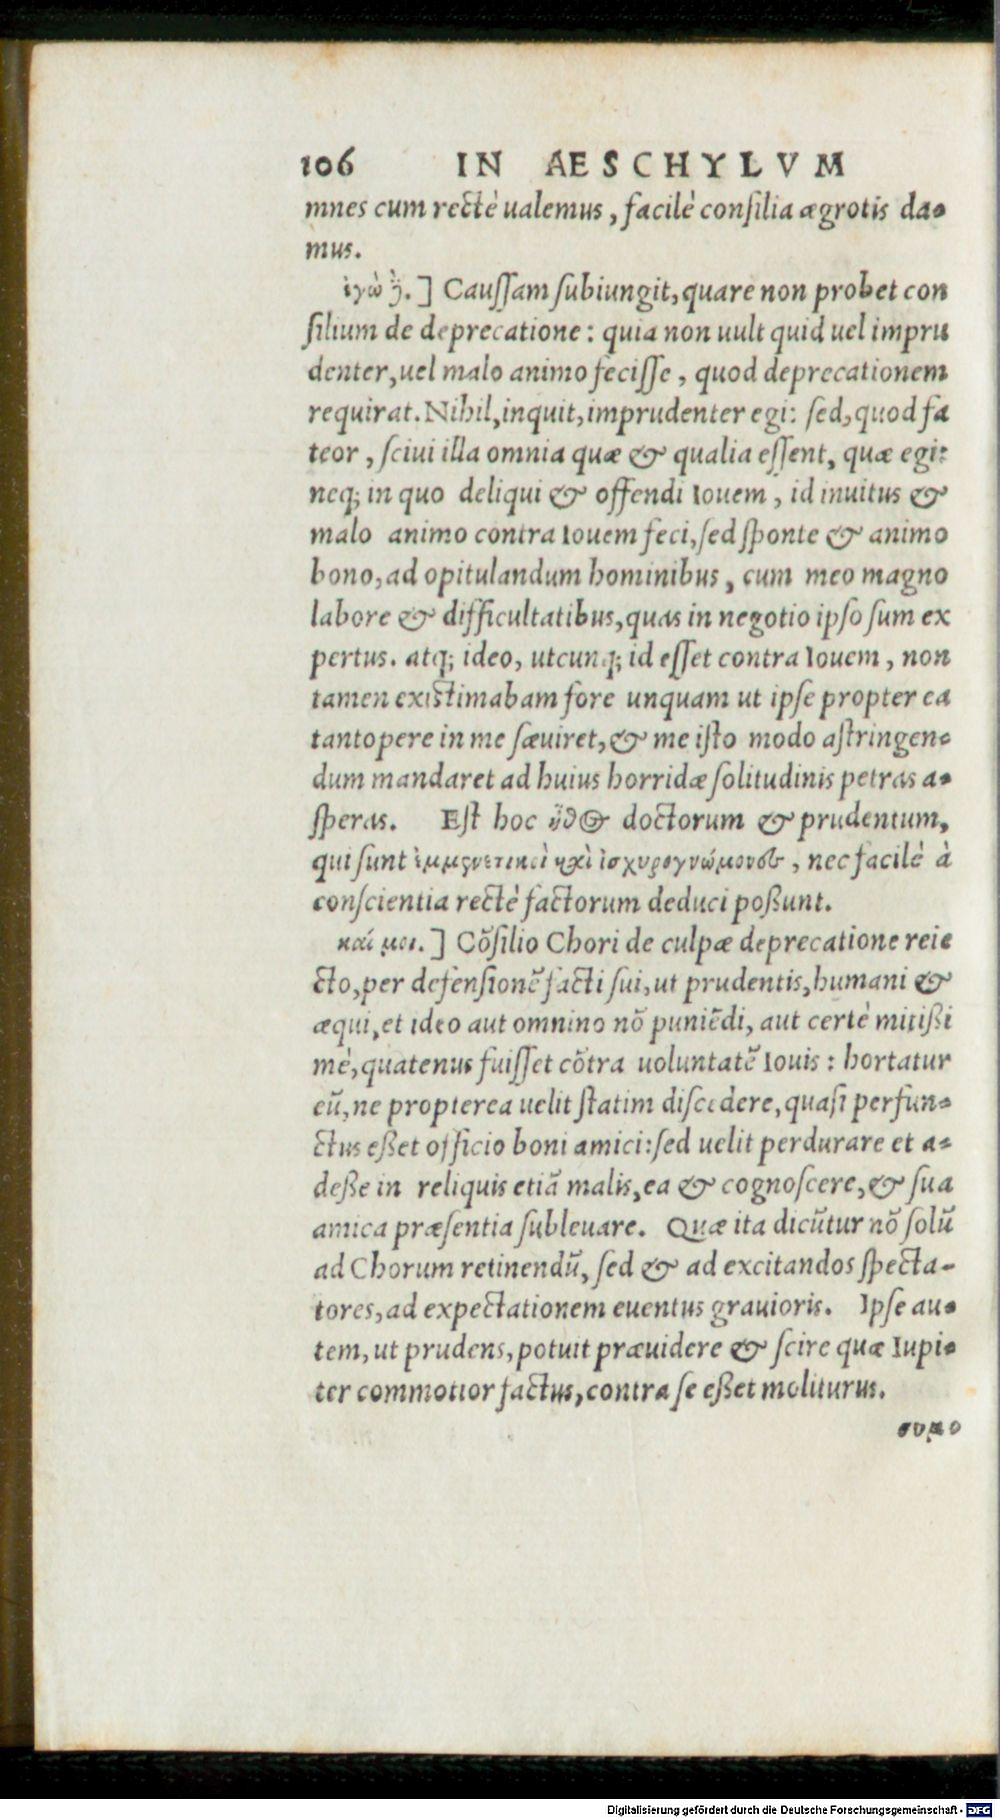 106 IN AESCHYLVM
mnes cum rectè ualemus, facilè consilia ægrotis da-
mus.
ἐγὼ δ̓.] Caussam subiungit, quare non probet con
silium de deprecatione: quia non uult quid uel impru
denter, uel malo animo fecisse, quod deprecationem
requirat. Nihil, inquit, imprudenter egi: sed, quod fa
teor, sciui illa omnia quæ & qualia essent, quæ egi:
neq; in quo deliqui & offendi Iouem, id inuitus &
malo animo contra Iouem feci, sed sponte & animo
bono, ad opitulandum hominibus, cum meo magno
labore & difficultatibus, quas in negotio ipso sum ex
pertus. atq; ideo, utcunq; id esset contra Iouem, non
tamen existimabam fore unquam ut ipse propter ea
tantopere in me sæuiret, & me isto modo astringen-
dum mandaret ad huius horridæ solitudinis petras a-
speras. Est hoc ἦθος doctorum & prudentum,
qui sunt ἐμμενετικοὶ καὶ ἰσχυρογνώμονες, nec facilè à
conscientia rectè factorum deduci poßunt.
καί μοι.] Cõsilio Chori de culpæ deprecatione reie
cto, per defensionẽ facti sui, ut prudentis, humani &
æqui, et ideo aut omnino nõ puniẽdi, aut certè mitißi
mè, quatenus fuisset cõtra uoluntatẽ Iouis: hortatur
eũ, ne propterea uelit statim discedere, quasi perfun-
ctus eßet officio boni amici: sed uelit perdurare et a-
deße in reliquis etiã malis, ea & cognoscere, & sua
amica præsentia subleuare. Quæ ita dicũtur nõ solũ
ad Chorum retinendũ, sed & ad excitandos specta-
tores, ad expectationem euentus grauioris. Ipse au-
tem, ut prudens, potuit præuidere & scire quæ Iupi-
ter commotior factus, contra se eßet moliturus.
Digitalisierung gefördert durch die Deutsche Forschungsgemeinschaft - DFG